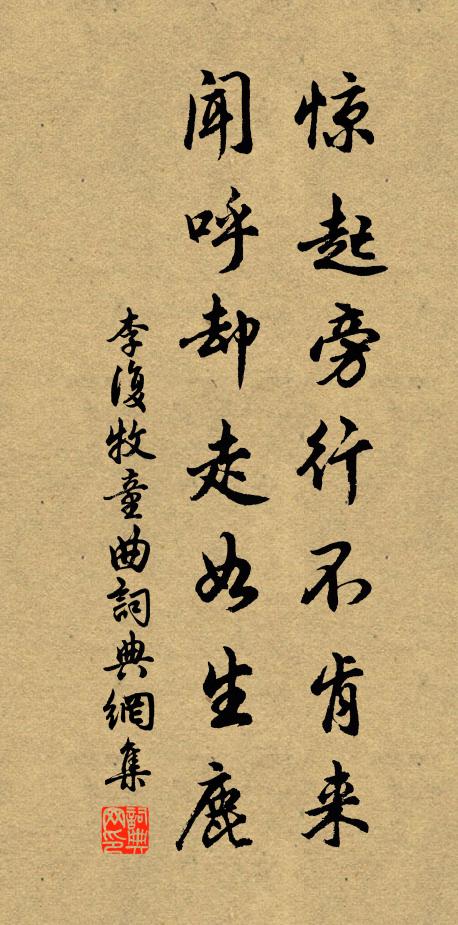 惊起旁行不肯来
闻呼却走如生鹿
李復牧童曲詞典網集
詞典網印